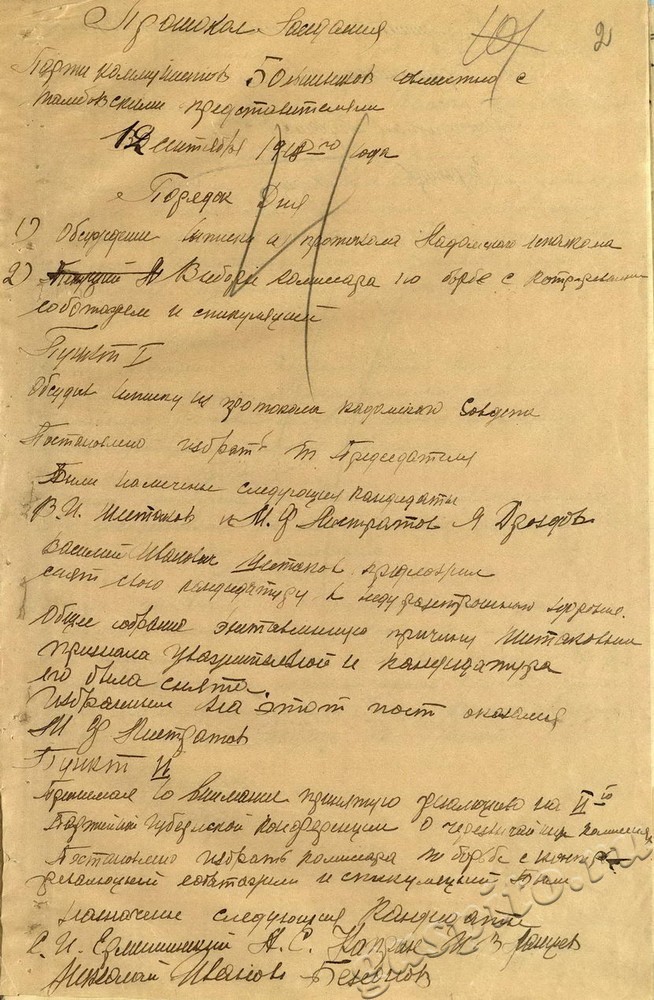 Протокол Заседания
2
Партии коммунистов Большиков совместно с
тамбовскими представителями
12 сентября 1918-го года
Порядок Дня
1) Обсуждение выписки из протокола Кадомского исполкома
2) Выборы комиссара по борьбе с
соботажем и спикуляцией
Пункт I
Обсудив выписку из протокола кадомского Совдепа
Постановлено избрать т. Председателя
Были намечены следующия кандидаты
В. И. и М. Ф. Я Дроздов
Василий Иванович предложил
снят свою кандидатуру к здоровию.
Общее собрание причину
признала уважительной и кандидатура
его была снята.
Избранным на этот пост оказался
М Ф
Пункт II
Принимая во внимание принятую резалюцию на II
Губернской Конференции О Чрезвычайных комиссиях
Постановлено избрать комиссара по борьбе с контр
резалюцией соботажем и спикуляцией Были
назначены следующия Кандидаты
С. И. А. С. И В
Николай Иванов